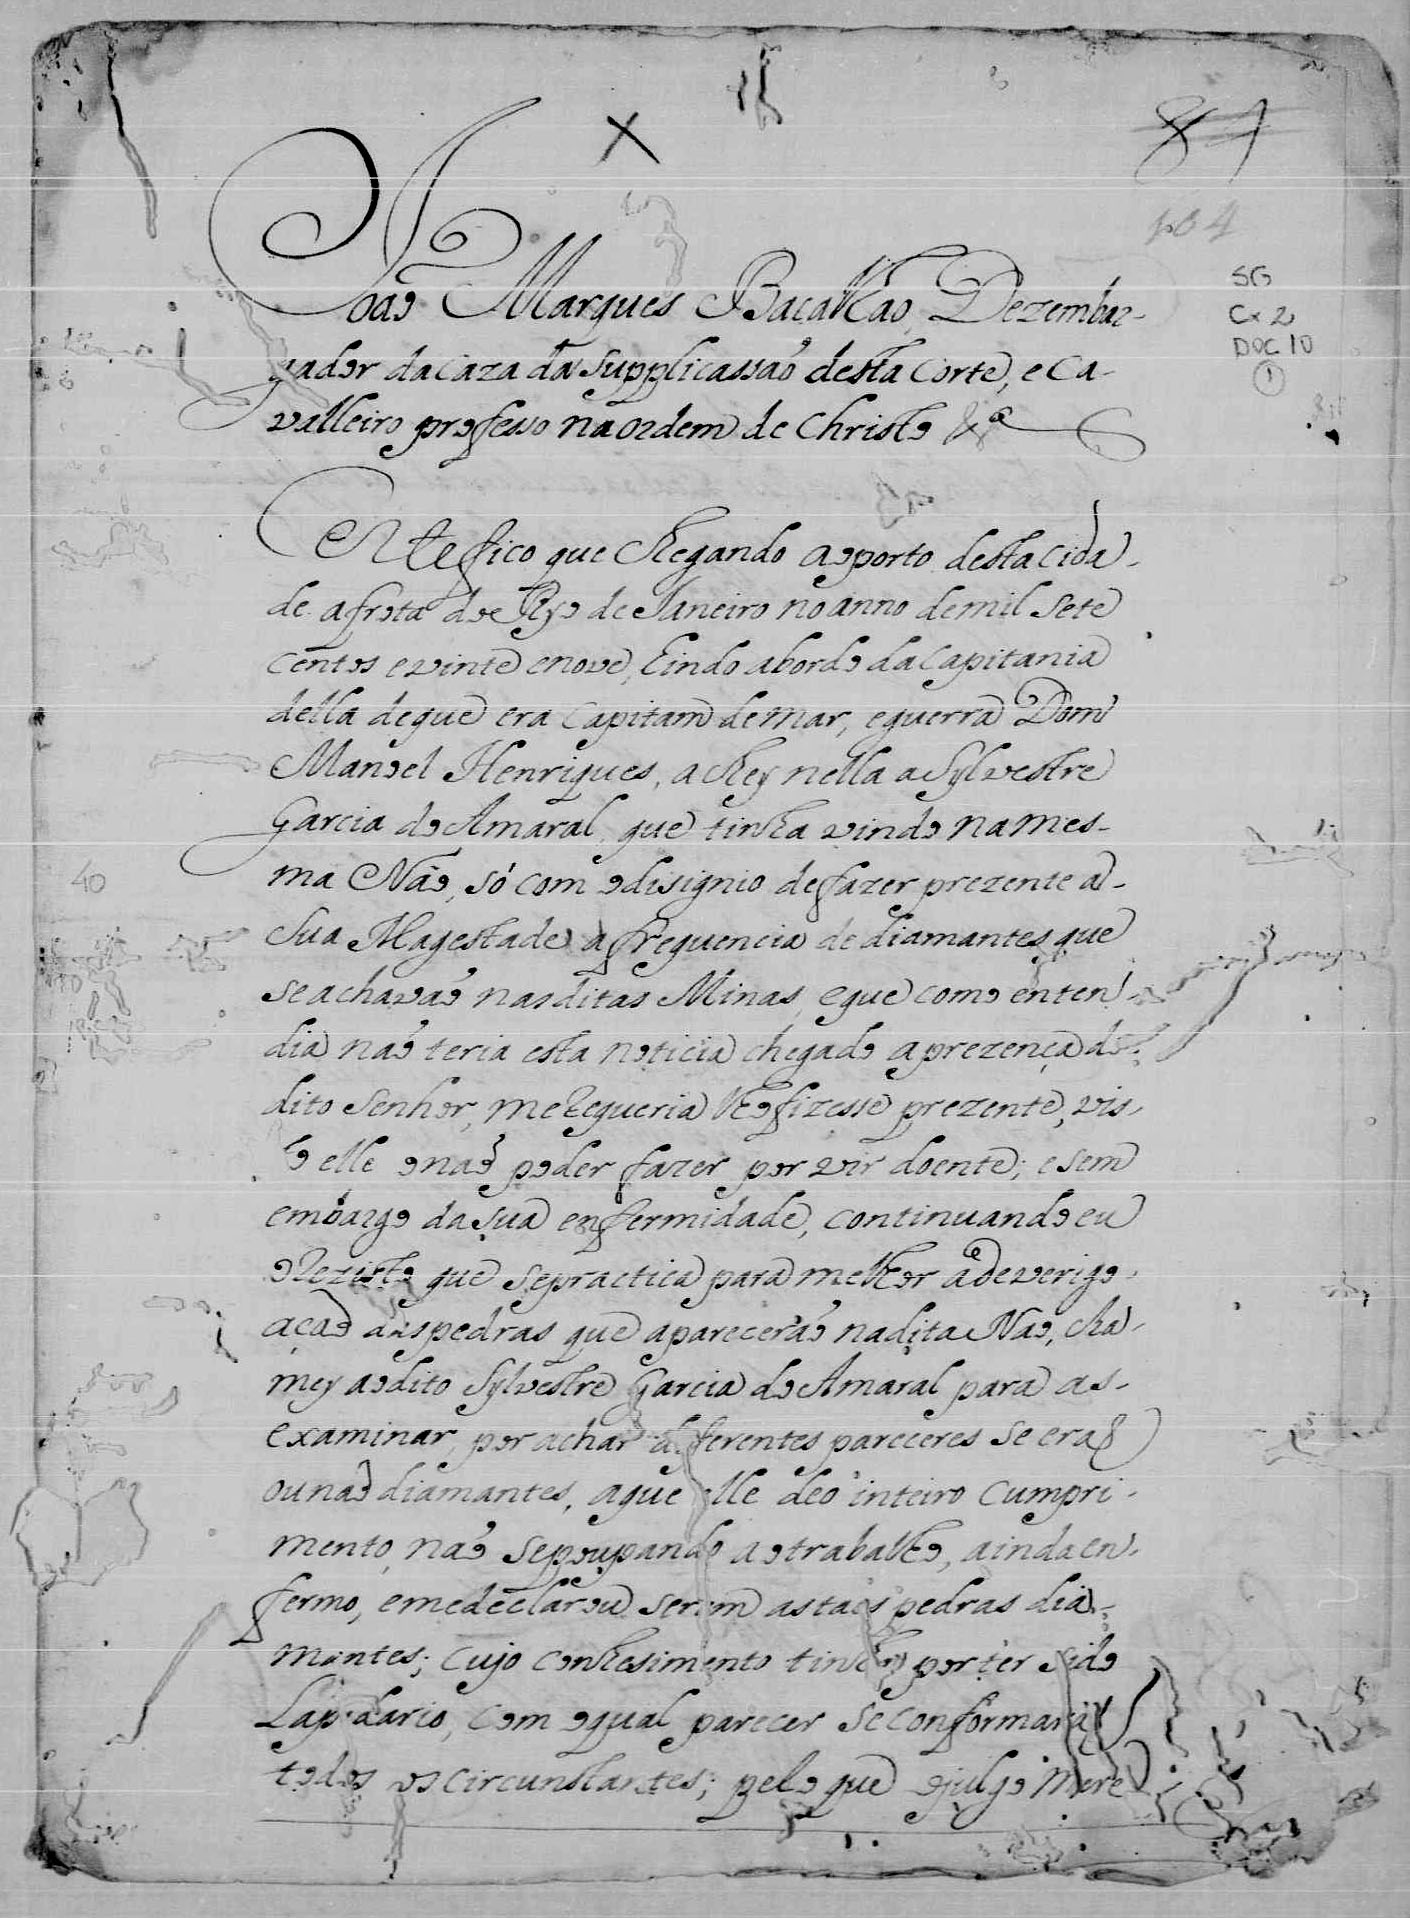 X
87
104
SG
Cx 2
DOC 10
1
Joaõ Marques Bacalhao, Dezembar-
gador da Caza da Supplicassaõ desta Corte, e Ca-
valleiro professo na ordem de Christo &ª
Certefico que chegando ao porto desta Cida-
de a frota do Ryo de Janeiro no anno de mil Sete
centos e vinte e nove, hindo abordo da Capitania
della de que era Capitam de mar, e guerra Dom
Manoel Henriques, achey nella a Sylvestre
Garcia do Amaral, que tinha vindo na mes-
ma Náo, só com o disignio de fazer prezente a-
Sua Magestade a frequencia de diamantes que
se achavaõ nas ditas Minas, e que como enten-
dia naõ teria esta noticia chegado a prezença do
dito Senhor, me requeria lho fizesse prezente, vis-
to elle o naõ poder fazer por vir doente; e sem
embargo da sua enfermidade, continuando eu
o Rezisto que se practica para melhor adeverigo-
açaõ das pedras que apareceraõ na dita Nao, cha-
mey ao dito Sylvestre Garcia do Amaral para as-
examinar, por achar diferentes pareceres se eraõ
ou naõ diamantes, a que elle deo inteiro cumpri-
mento, naõ se poupando ao trabalho, ainda en-
fermo, e me declarou serem as taes pedras dia-
mantes; cujo conhesimento tinha por ter sido
Lapidario, com o qual parecer se conformaraõ
todos os circunstantes; pelo que o julgo mere
40